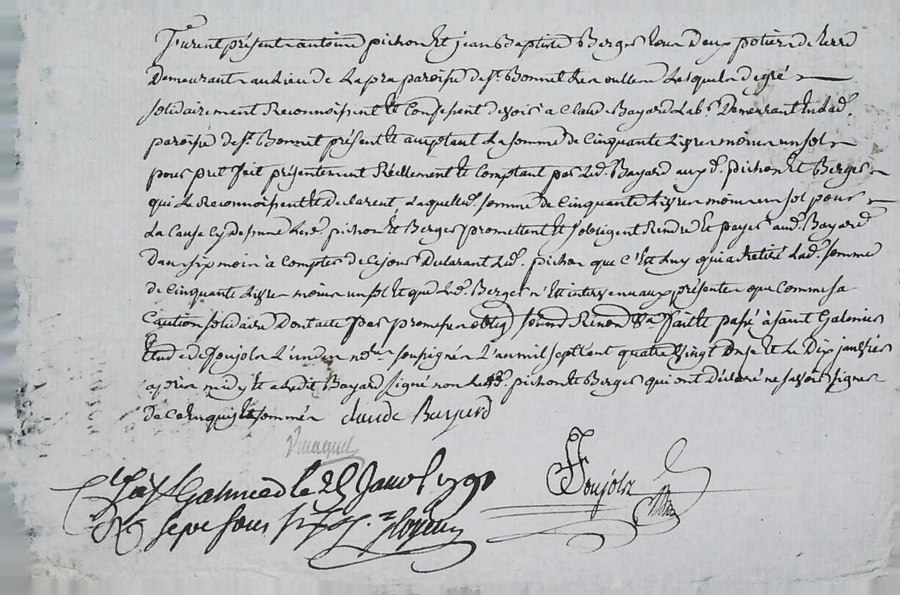 Furent présent antoine pichon Et jean Baptiste Berger tous Deux potiers de terre
Demeurant au Lieu de Lapra paroisse de St. Bonnet Les oulles Lesquels de gré
solidairement Reconnoissent Et Confessent devoir a Claude Bayard Lab.r Demeurant En lad.
paroisse de St. Bonnet présent Et acceptant La somme de Cinquante Livres moins un sol
pour pret fait présentement Réellement Et Comptant par Led. Bayard auxd. pichon Et Berger
qui Le Reconnoissent Et Declarent Laquelle d. somme de Cinquante Livres moins un sol pour
La Cause Cy dessus Lesd. pichon Et Berger promettent Et s'obligent Rendre Et payer aud. Bayard
Dans six mois à Compter de Ce jour Déclarant Led. pichon que C'Est Luy qui a Retiré Lad. somme
de Cinquante Livres moins un sol Et que Led. Berger n'Est intervenu aux présentes que Comme sa
Caution solidaire Dont acte par promesse oblig soum Renon Et a fait Et passé à saint Galmier
Etude de Joujolz L'un des no.res soussignés L'an mil sept Cent quatre vingt onze Et Le Dix janvier
après midy Et a Ledit Bayard signé non Lesd. pichon Et Berger qui ont déclaré ne savoir signer
De Ce Enquis Et sommés claude Bayard
Galmier le 25 Janv. 1791
Joujolz